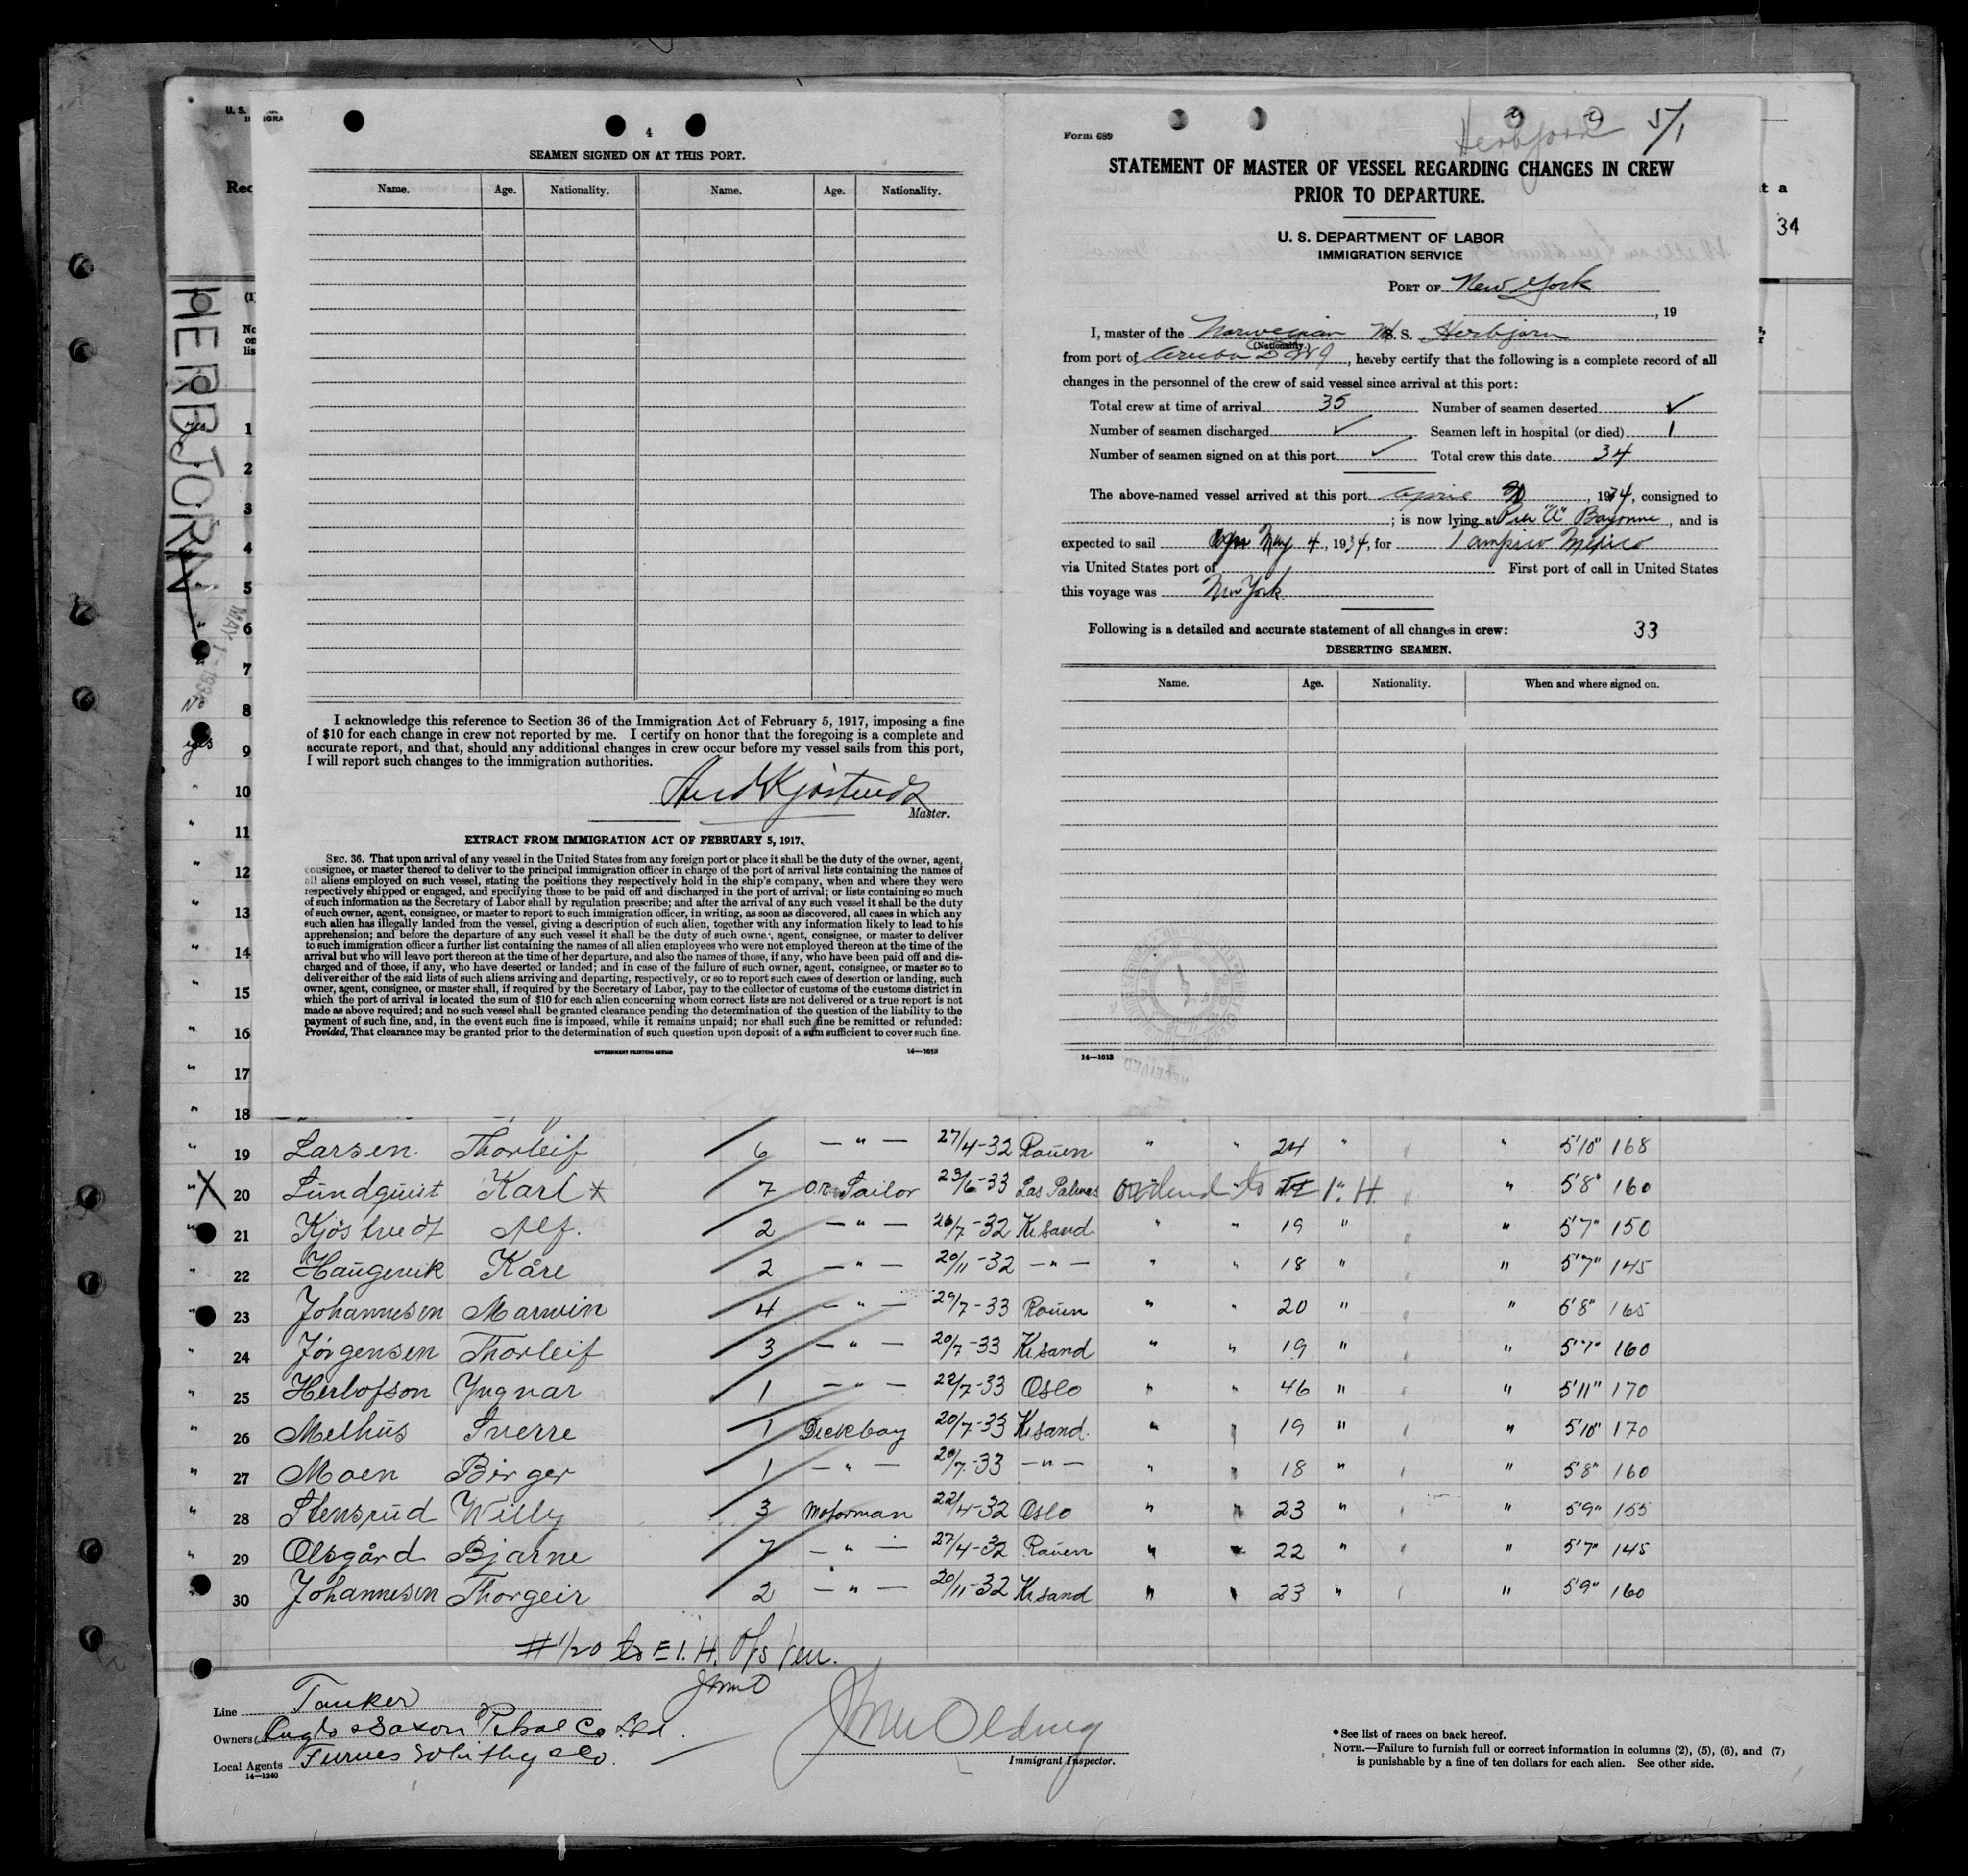 4
SEAMEN SIGNED ON AT THIS PORT.
Name. Age. Nationality. Name. Age. Nationality.
I acknowledge this reference to Section 36 of the Immigration Act of February 5, 1917, imposing a fine
of $10 for each change in crew not reported by me. I certify on honor that the foregoing is a complete and
accurate report, and that, should any additional changes in crew occur before my vessel sails from this port,
I will report such changes to the immigration authorities.
Master.
EXTRACT FROM IMMIGRATION ACT OF FEBRUARY 5, 1917.
SEC. 36. That upon arrival of any vessel in the United States from any foreign port or place it shall be the duty of the owner, agent,
consignee, or master thereof to deliver to the principal immigration officer in charge of the port of arrival lists containing the names of
all aliens employed on such vessel, stating the positions they respectively hold in the ship's company, when and where they were
respectively shipped or engaged, and specifying those to be paid off and discharged in the port of arrival; or lists containing so much
of such information as the Secretary of Labor shall by regulation prescribe; and after the arrival of any such vessel it shall be the duty
of such owner, agent, consignee, or master to report to such immigration officer, in writing, as soon as discovered, all cases in which any
such alien has illegally landed from the vessel, giving a description of such alien, together with any information likely to lead to his
apprehension; and before the departure of any such vessel it shall be the duty of such owner, agent, consignee, or master to deliver
to such immigration officer a further list containing the names of all alien employees who were not employed thereon at the time of the
arrival but who will leave port thereon at the time of her departure, and also the names of those, if any, who have been paid off and dis-
charged and of those, if any, who have deserted or landed; and in case of the failure of such owner, agent, consignee, or master so to
deliver either of the said lists of such aliens arriving and departing, respectively, or so to report such cases of desertion or landing, such
owner, agent, consignee, or master shall, if required by the Secretary of Labor, pay to the collector of customs of the customs district in
which the port of arrival is located the sum of $10 for each alien concerning whom correct lists are not delivered or a true report is not
made as above required; and no such vessel shall be granted clearance pending the determination of the question of the liability to the
payment of such fine, and, in the event such fine is imposed, while it remains unpaid; nor shall such fine be remitted or refunded:
Provided, That clearance may be granted prior to the determination of such question upon deposit of a sum sufficient to cover such fine.
GOVERNMENT PRINTING OFFICE 14—1013
Herbjorn 5/1
Form 689
STATEMENT OF MASTER OF VESSEL REGARDING CHANGES IN CREW
PRIOR TO DEPARTURE.
U. S. DEPARTMENT OF LABOR
IMMIGRATION SERVICE
PORT OF New York
, 19
I, master of the Norwegian M S. S. Herbjorn
(Nationality.)
from port of Aruba D W I, hereby certify that the following is a complete record of all
changes in the personnel of the crew of said vessel since arrival at this port:
Total crew at time of arrival 35 Number of seamen deserted ✓
Number of seamen discharged ✓ Seamen left in hospital (or died) 1
Number of seamen signed on at this port ✓ Total crew this date 34
The above-named vessel arrived at this port April 30, 1934, consigned to
; is now lying at Pier "A" Bayonne, and is
expected to sail May 4, 1934, for Tampico Mexico
via United States port of First port of call in United States
this voyage was New York
Following is a detailed and accurate statement of all changes in crew: 33
DESERTING SEAMEN.
Name. Age. Nationality. When and where signed on.
14—1013
34
HERBJORN
MAY 1 - 1934
1
2
3
4
5
6
7
8
9
10
11
12
13
14
15
16
17
18
19 Larsen Thorleif 6 — " — 27/4-32 Rouen " " 24 " " 5'10" 168
20 Lundquist Karl * 7 Sailor 23/6-33 Las Palmas " 5'8" 160
21 Kjöstvedt Alf. 2 — " — 26/7-32 Kr.sand " " 19 " " 5'7" 150
22 Haugevik Kåre 2 — " — 20/11-32 — " — " " 18 " " 5'7" 145
23 Johannesen Marwin 4 — " — 29/7-33 Rouen " " 20 " " 5'8" 165
24 Jørgensen Thorleif 3 — " — 20/7-33 Kr.sand " " 19 " " 5'7" 160
25 Herlofson Yngvar 1 — " — 22/7-33 Oslo " " 46 " " 5'11" 170
26 Melhus Sverre 1 Deckboy 20/7-33 Kr.sand " " 19 " " 5'10" 170
27 Moen Birger 1 — " — 20/7-33 — " — " " 18 " " 5'8" 160
28 Stensrud Willy 3 Motorman 22/4-32 Oslo " " 23 " " 5'9" 155
29 Olsgård Bjarne 7 — " — 27/4-32 Rouen " " 22 " " 5'7" 145
30 Johannesen Thorgeir 2 — " — 20/11-32 Kr.sand " " 23 " " 5'9" 160
Line Tanker
Owners Anglo Saxon Petrol Co Ltd.
Local Agents Furness Whithy & Co.
14—1240
Immigrant Inspector.
*See list of races on back hereof.
NOTE.—Failure to furnish full or correct information in columns (2), (5), (6), and (7)
is punishable by a fine of ten dollars for each alien. See other side.